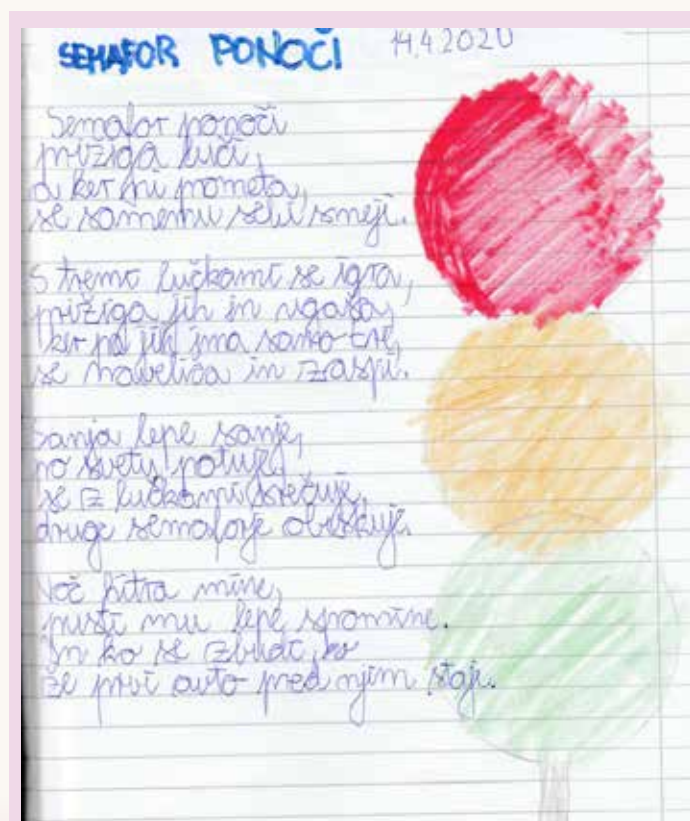 SEMAFOR PONOČI 14.4.2020
Semafor ponoči
prižiga luči,
a ker ni prometa,
se samemu sebi smeji.
S tremi lučkami se igra,
prižiga jih in ugaša,
ker pa jih ima samo tri,
se naveliča in zaspi.
Sanja lepe sanje,
po svetu potuje,
se z lučkami srečuje,
druge semaforje obiskuje.
Noč hitro mine,
pusti mu lepe spomine.
In ko se zbudi,
že prvi auto pred njim stoji.